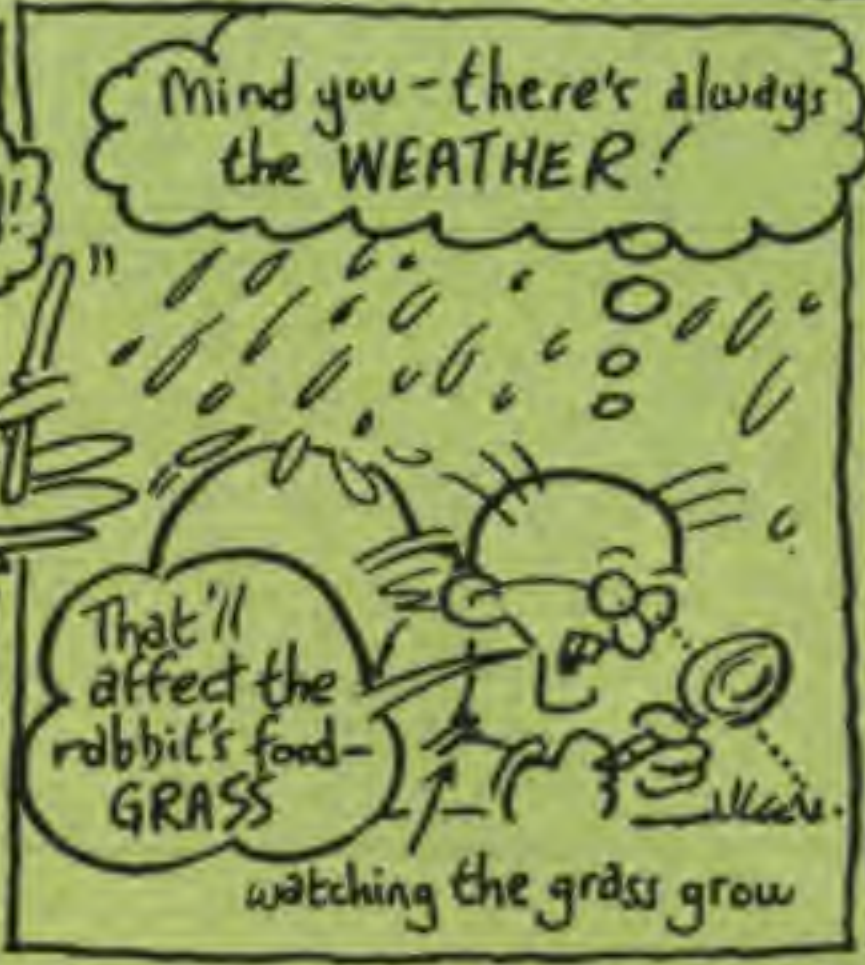 !
Mind you - there's always
the WEATHER!
That'll
affect the
rabbit's food-
GRASS
watching the grass grow